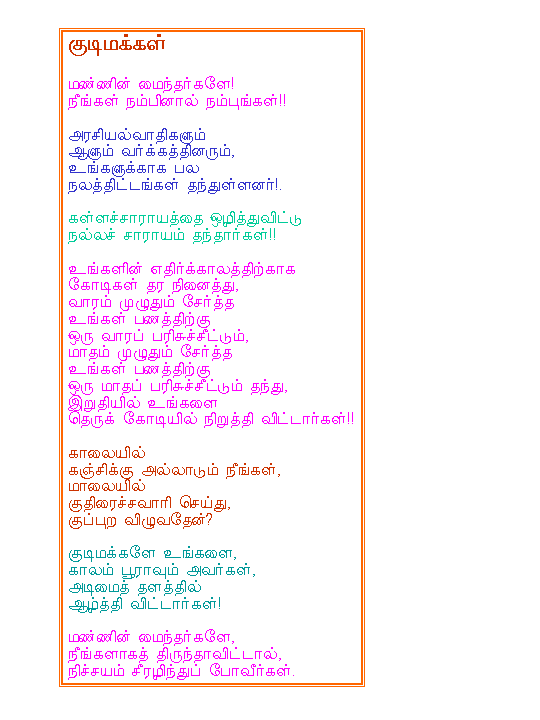 குடிமக்கள்
மண்ணின் மைந்தர்களே!
நீங்கள் நம்பினால் நம்புங்கள்!!
அரசியல்வாதிகளும்
ஆளும் வர்க்கத்தினரும்,
உங்களுக்காக பல
நலத்திட்டங்கள் தந்துள்ளனர்!.
கள்ளச்சாராயத்தை ஒழித்துவிட்டு
நல்லச் சாராயம் தந்தார்கள்!!
உங்களின் எதிர்க்காலத்திற்காக
கோடிகள் தர நினைத்து,
வாரம் முழுதும் சேர்த்த
உங்கள் பணத்திற்கு
ஒரு வாரப் பரிசுச்சீட்டும்,
மாதம் முழுதும் சேர்த்த
உங்கள் பணத்திற்கு
ஒரு மாதப் பரிசுச்சீட்டும் தந்து,
இறுதியில் உங்களை
தெருக் கோடியில் நிறுத்தி விட்டார்கள்!!
காலையில்
கஞ்சிக்கு அல்லாடும் நீங்கள்,
மாலையில்
குதிரைச்சவாரி செய்து,
குப்புற விழுவதேன்?
குடிமக்களே உங்களை,
காலம் பூராவும் அவர்கள்,
அடிமைத் தளத்தில்
ஆழ்த்தி விட்டார்கள்!
மண்ணின் மைந்தர்களே,
நீங்களாகத் திருந்தாவிட்டால்,
நிச்சயம் சீரழிந்துப் போவீர்கள்.